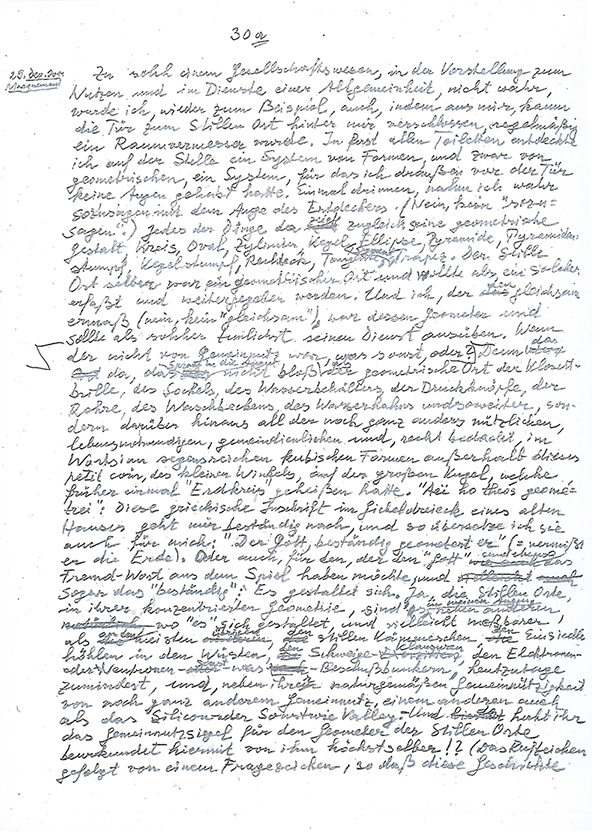 30a
29. Dez. 2011
Zu solch einem Gesellschaftswesen, in der Vorstellung zum
Nutzen und im Dienste einer Allgemeinheit, nicht wahr,
wurde ich, wieder zum Beispiel, auch, indem aus mir, kaum
die Tür zum Stillen Ort hinter mir verschlossen, regelmäßig
ein Raumvermesser wurde. In fast allen Toiletten entdeckte
ich auf der Stelle ein System von Formen, und zwar von
geometrischen, ein System, für das ich draußen vor der Tür
keine Augen gehabt hatte. Einmal drinnen, nahm ich wahr
sozusagen mit dem Auge des Entdeckers. (Nein, kein "sozu=
sagen".) Jedes der Dinge da zugleich seine geometrische
Gestalt Kreis, Oval, Zylinder, Kegel, Ellipse, Pyramide, Pyramiden-
stumpf, Kegelstumpf, Rechteck, Trapez. Der Stille
Ort selber war ein geometrischer Ort und wollte als ein solcher
erfaßt und weitergegeben werden. Und ich, der gleichsam
ermaß (nein, kein "gleichsam"), war dessen Geometer und
sollte als solcher tunlichst seinen Dienst ausüben. Wenn
der nicht von Gemeinnutz war, was sonst, oder? Denn
da, das nicht bloß die geometrische Ort der Klosett-
brille, des Sockels, des Wasserbehälters, der Druckknöpfe, der
Rohre, des Waschbeckens, des Wasserhahns undsoweiter, son-
dern darüber hinaus all der noch ganz anders nützlichen,
lebensnotwendigen, gemeindienlichen und, recht bedacht, im
Wortsinn segensreichen kubischen Formen außerhalb dieses
petit coin, des kleinen Winkels, auf der großen Kugel, welche
früher einmal "Erdkreis" geheißen hatte. "Aei ho theos geome-
trei": Diese griechische Inschrift im Giebeldreieck eines alten
Hauses geht mir beständig nach, und so übersetze ich sie
auch für mich: "Der Gott, beständig geometert er" (= vermißt
er die Erde). Oder auch, für den, der den "Gott" das
Fremd-Wort aus dem Spiel haben möchte, und
sogar das "beständig": Es gestaltet sich. Ja, die Stillen Orte,
in ihrer konzentrierten Geometrie, sind
wo "es" sich gestaltet, und vielleicht meßbarer,
als meisten stillen Kämmerchen Einsiedler
höhlen in den Wüsten, den Schweige- den Elektronen-
oder Neutronen- was Beschußbunkern, heutzutage
zumindest, und, neben ihrer naturgemäßen Gemeinnützigkeit
von noch ganz anderem Gemeinnutz, einem anderen auch
als das Silicon- oder Sonstwie Valley. Und hiermit habt ihr
das Gemeinnutzsiegel für den Geometer der Stillen Orte
beurkundet hiermit von ihm höchstselber!? (Das Rufzeichen
gefolgt von einem Fragezeichen, so daß diese Geschichte